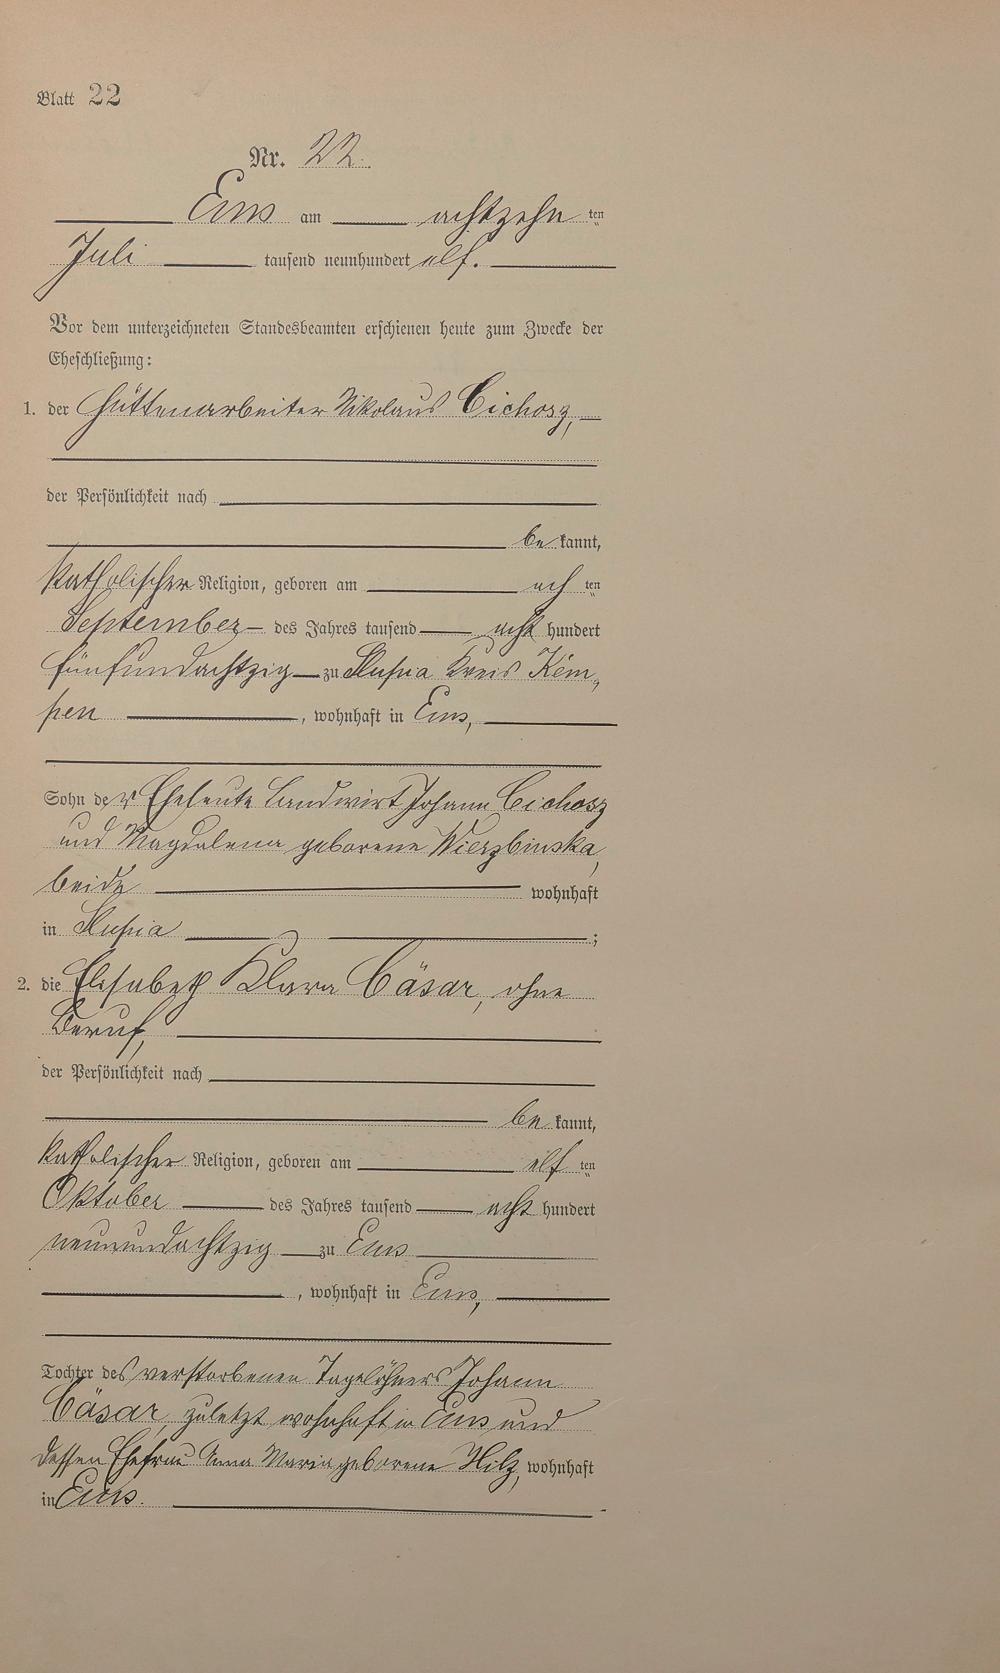 Blatt 22
Nr. 22.
Ems am achtzehn ten
Juli tausend neunhundert elf.
Vor dem unterzeichneten Standesbeamten erschienen heute zum Zwecke der
Eheschließung:
1. der Hüttenarbeiter Nikolaus Cichosz,
der Persönlichkeit nach
be kannt,
katholischer Religion, geboren am ach ten
September des Jahres tausend acht hundert
fünfundachtzig zu Slupia Kreis Kem-
pen , wohnhaft in Ems,
Sohn der Eheleute Landwirt Johann Cichosz
und Magdalena geborene Wierzbinska,
beide wohnhaft
in Slupia ;
2. die Elisabeth Klara Cäsar, ohne
Beruf,
der Persönlichkeit nach
be kannt,
katholischer Religion, geboren am elf ten
Oktober des Jahres tausend acht hundert
neunundachtzig zu Ems
, wohnhaft in Ems,
Tochter des verstorbenen Tagelöhners Johann
Cäsar, zuletzt wohnhaft in Ems und
dessen Ehefrau Anna Maria geborene Hilz, wohnhaft
in Ems.